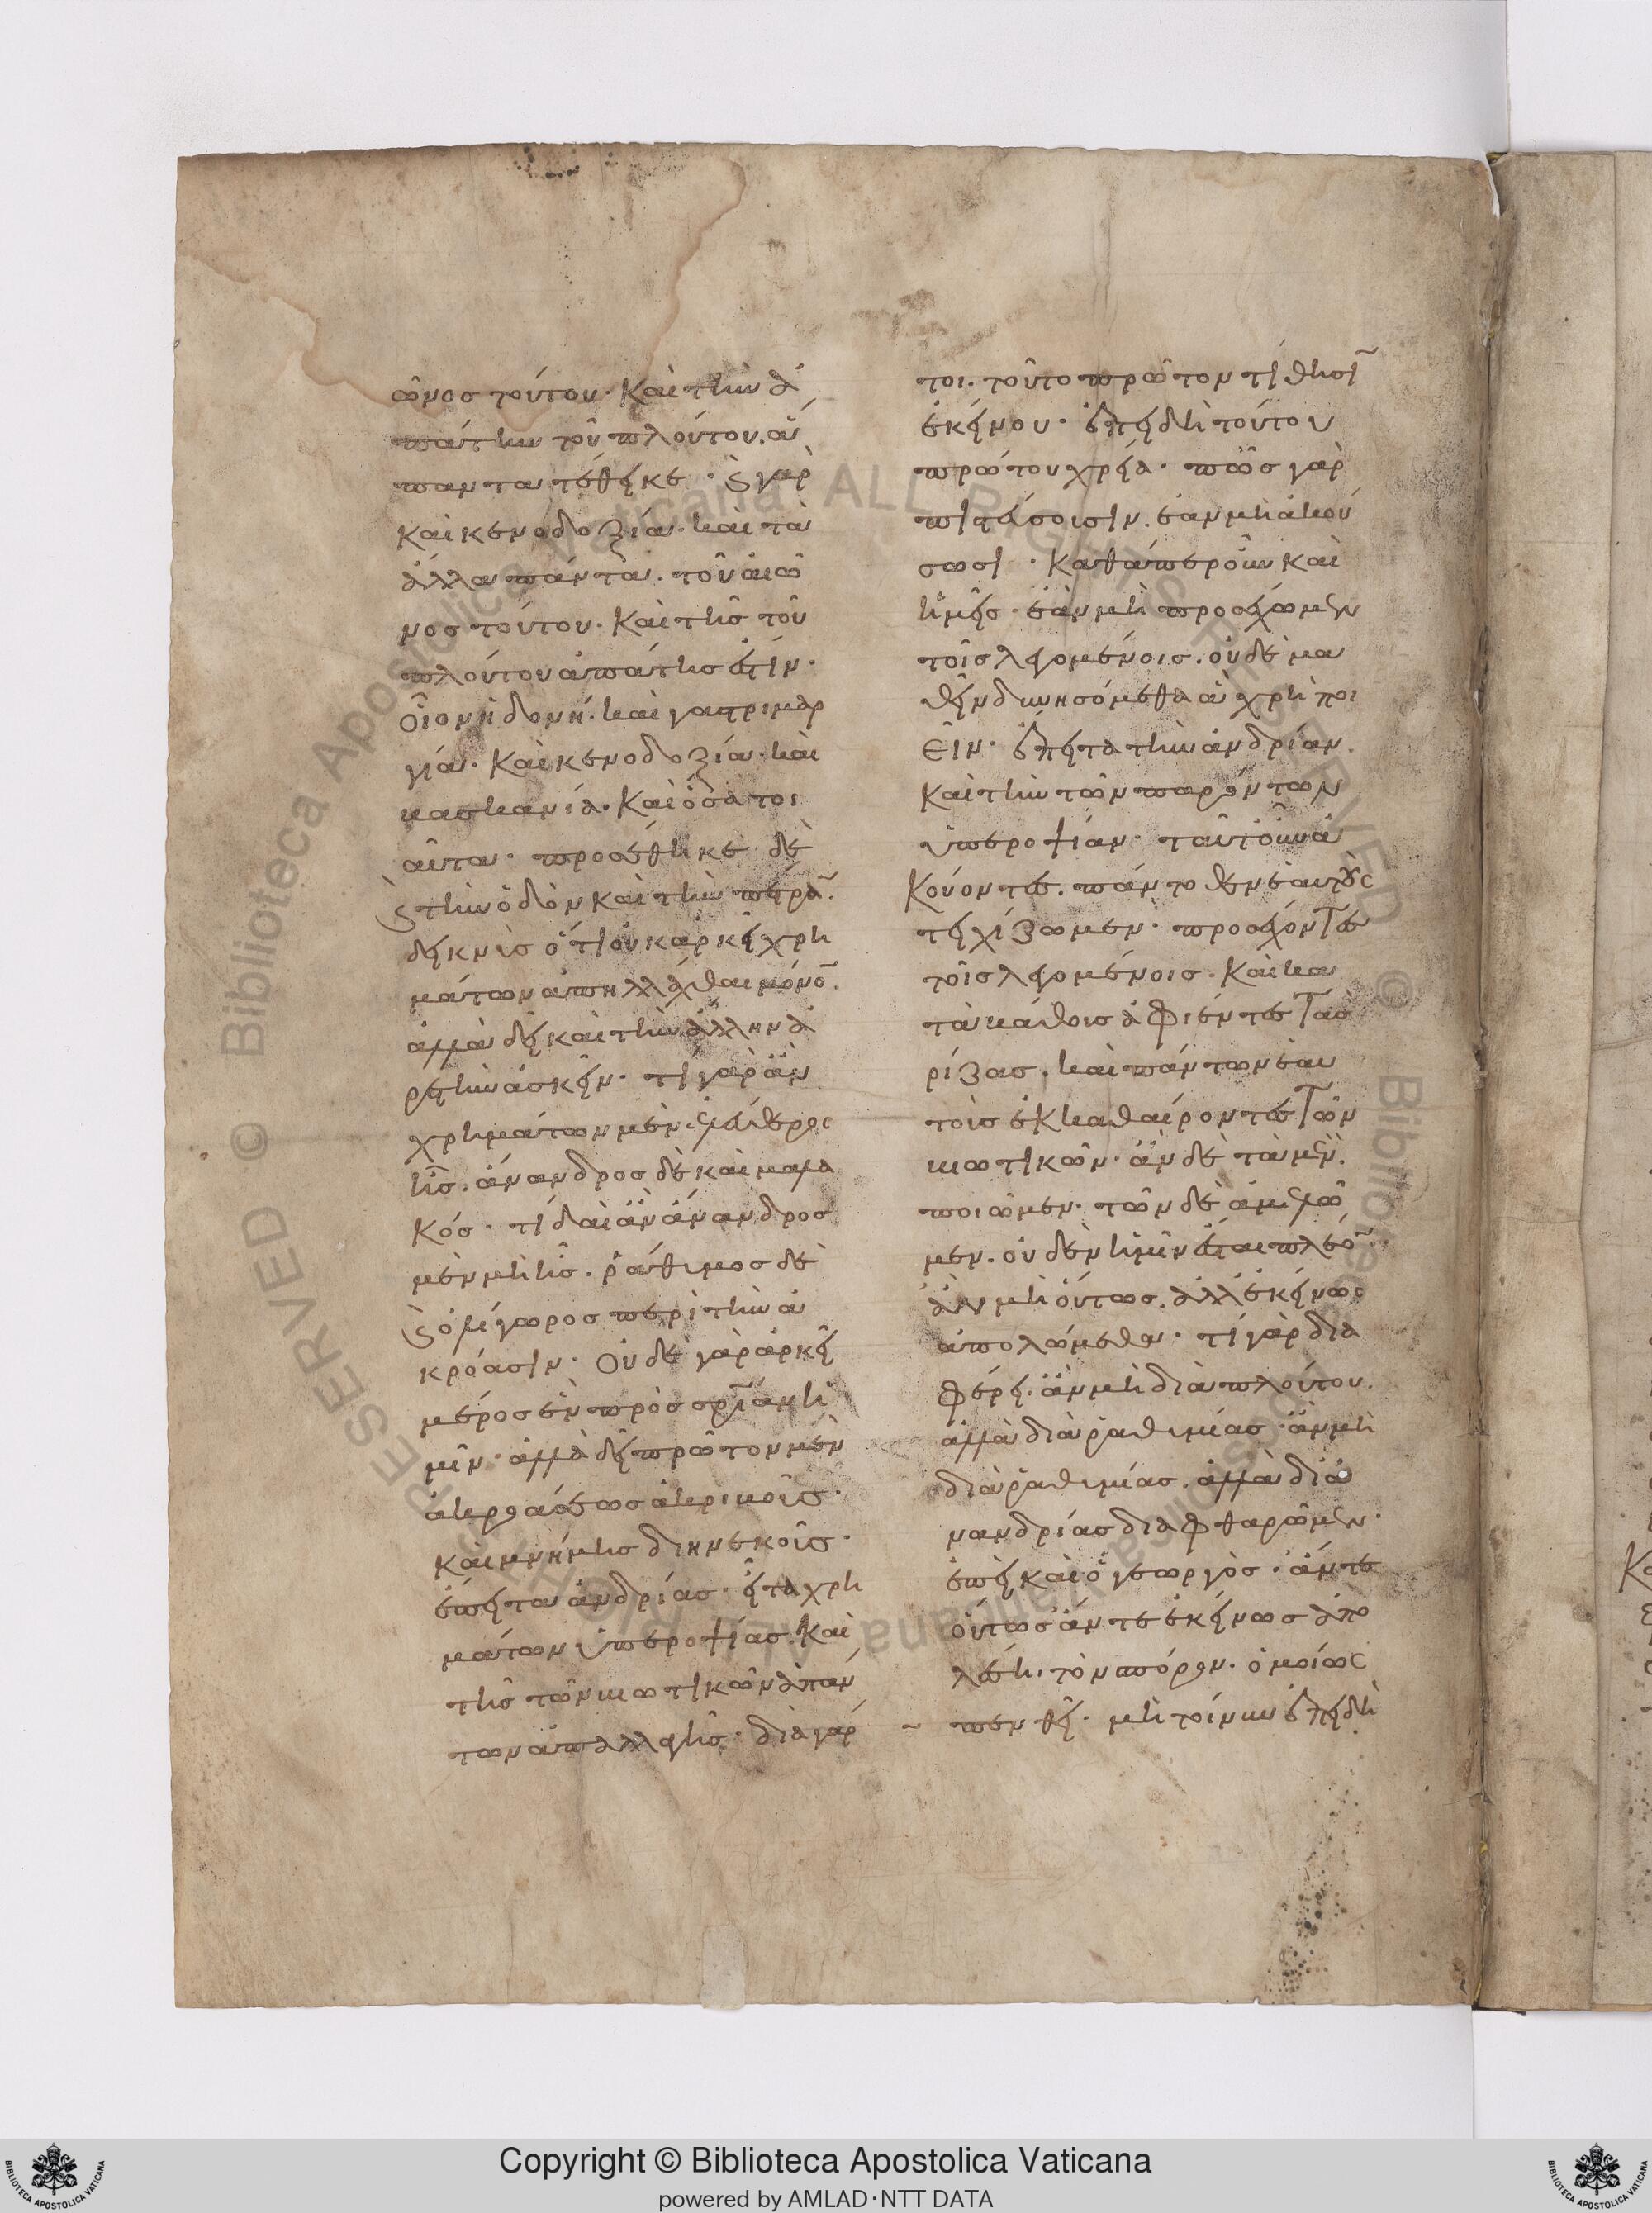 ῶνος τούτου· καὶ τὴν ἀ
πάτην τοῦ πλούτου. ἅ
παντα τέθεικε· ϛ γὰρ
καὶ κενοδοξία· καὶ τὰ
ἄλλα πάντα. τοῦ αἰῶ
νος τούτου· καὶ τῆς τοῦ
πλούτου ἀπάτης ἐστίν·
οἷον ἡδονή. καὶ γαστριμαρ
γία· καὶ κενοδοξία· καὶ
βασκανία· καὶ ὅσα τοι
αῦτα· προσέθηκε δὲ
ϛ τὴν ὁδὸν καὶ τὴν πέτρα̅.
δεικνὺς ὅτι οὐκ ἀρκεῖ χρη
μάτων ἀπηλλάχθαι μόνο̅.
ἀλλὰ δεῖ καὶ τὴν ἄλλην ἀ
ρετὴν ἀσκεῖν· τί γὰρ ἂν
χρημάτων μὲν ἐλεύθερος
ῇς. ἄνανδρος δὲ καὶ μαλα
κός· τί δαὶ ἂν ἄνανδρος
μὲν μὴ ῇς. ῥάθυμος δὲ
ϛ ὀλίγωρος περὶ τὴν ἀ
κρόασιν· οὐδὲ γὰρ ἀρκεῖ
μέρος ἓν πρὸς σρ̅ίαν ἡ
μῖν· ἀλλὰ δεῖ πρῶτον μὲν
ἀκροάσεως ἀκριβοῦς·
καὶ μνήμης διηνεκοῦς·
ἔπειτα ἀνδρίας· εἶτα χρη
μάτων ὑπεροψίας. καὶ
τῆς τῶν βιωτικῶν ἁπάν
των ἀπαλλαγῆς· διὰ γάρ
τοι. τοῦτο πρῶτον τίθησι̅
ἐκείνου· ἐπειδὴ τούτου
πρώτου χρεία· πῶς γὰρ
πιστεύσουσιν. ἐὰν μὴ ἀκού
σωσι· καθάπερ οὖν καὶ
ἡμεῖς· ἐὰν μὴ προσέχωμεν
τοῖς λεγομένοις. οὐδὲ μα
θεῖν δυνησόμεθα ἃ χρὴ ποι
εῖν· ἔπειτα τὴν ἀνδρίαν.
καὶ τὴν τῶν παρόντων
ὑπεροψίαν· ταῦτ' οὖν ἀ
κούοντες. πάντοθεν ἑαυτοὺς
τειχίζωμεν· προσέχοντες
τοῖς λεγομένοις· καὶ κα
τὰ βάθους ἀφιέντες τὰς
ῥίζας. καὶ πάντων ἑαυ
τοὺς ἐκκαθαίροντες τῶν
βιωτικῶν· ἂν δὲ τὰ μὲν.
ποιῶμεν· τῶν δὲ ἀμελῶ
μεν. οὐδὲν ἡμῖν ἔσται πλέο̅·
ἂν μὴ οὕτως. ἀλλ' ἐκείνως
ἀπολώμεθα· τί γὰρ δια
φέρει. ἂν μὴ διὰ πλούτου.
ἀλλὰ διὰ ῥαθυμίας· ἂν μὴ
διὰ ῥαθυμίας. ἀλλὰ δι' ἀ
νανδρίας διαφθαρῶμεν·
ἐπεὶ καὶ ὁ γεωργὸς· ἄν τε
οὕτως ἄν τε ἐκείνως ἀπο
λέσῃ. τὸν σπόρον. ὁμοίως
πενθεῖ· μὴ τοίνυν ἐπειδὴ